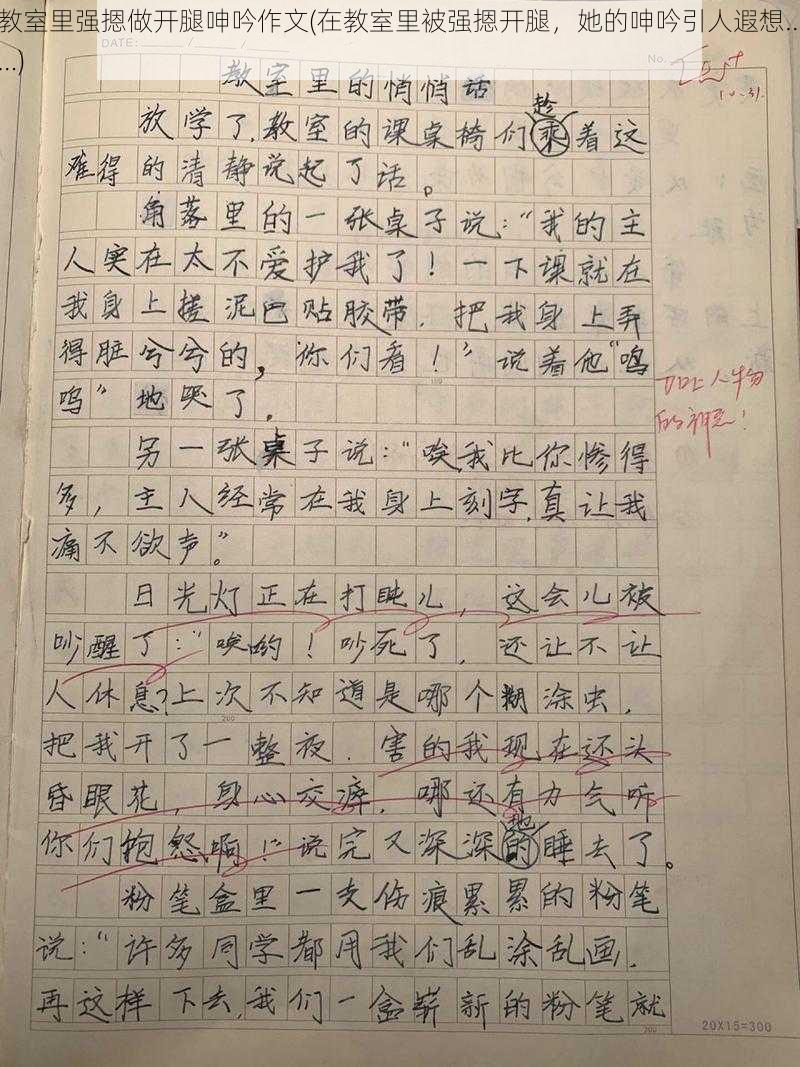 教室里强摁做开腿呻吟作文(在教室里被强摁开腿，她的呻吟引人遐想..
....)
DATE:
No.
10.31.
教室里的悄悄话
趁
放学了,教室的课桌椅们乘着这
难得的清静说起了话。
角落里的一张桌子说：“我的主
人实在太不爱护我了！一下课就在
我身上搓泥巴贴胶带，把我身上弄
得脏兮兮的，你们看！”说着他“呜
呜”地哭了，
加上人物
的神态！
另一张桌子说：“唉我比你惨得
多，主人经常在我身上刻字,真让我
痛不欲声。”
日光灯正在打盹儿，这会儿被
吵醒了：“唉哟！吵死了，还让不让
人休息？上次不知道是哪个糊涂虫，
把我开了一整夜，害的我现在还头
昏眼花，身心交瘁，哪还有力气听
地
你们抱怨啊！”说完又深深的睡去了。
粉笔盒里一支伤痕累累的粉笔
说：“许多同学都用我们乱涂乱画，
再这样下去,我们一盒崭新的粉笔就
100
200
200
20X15=300